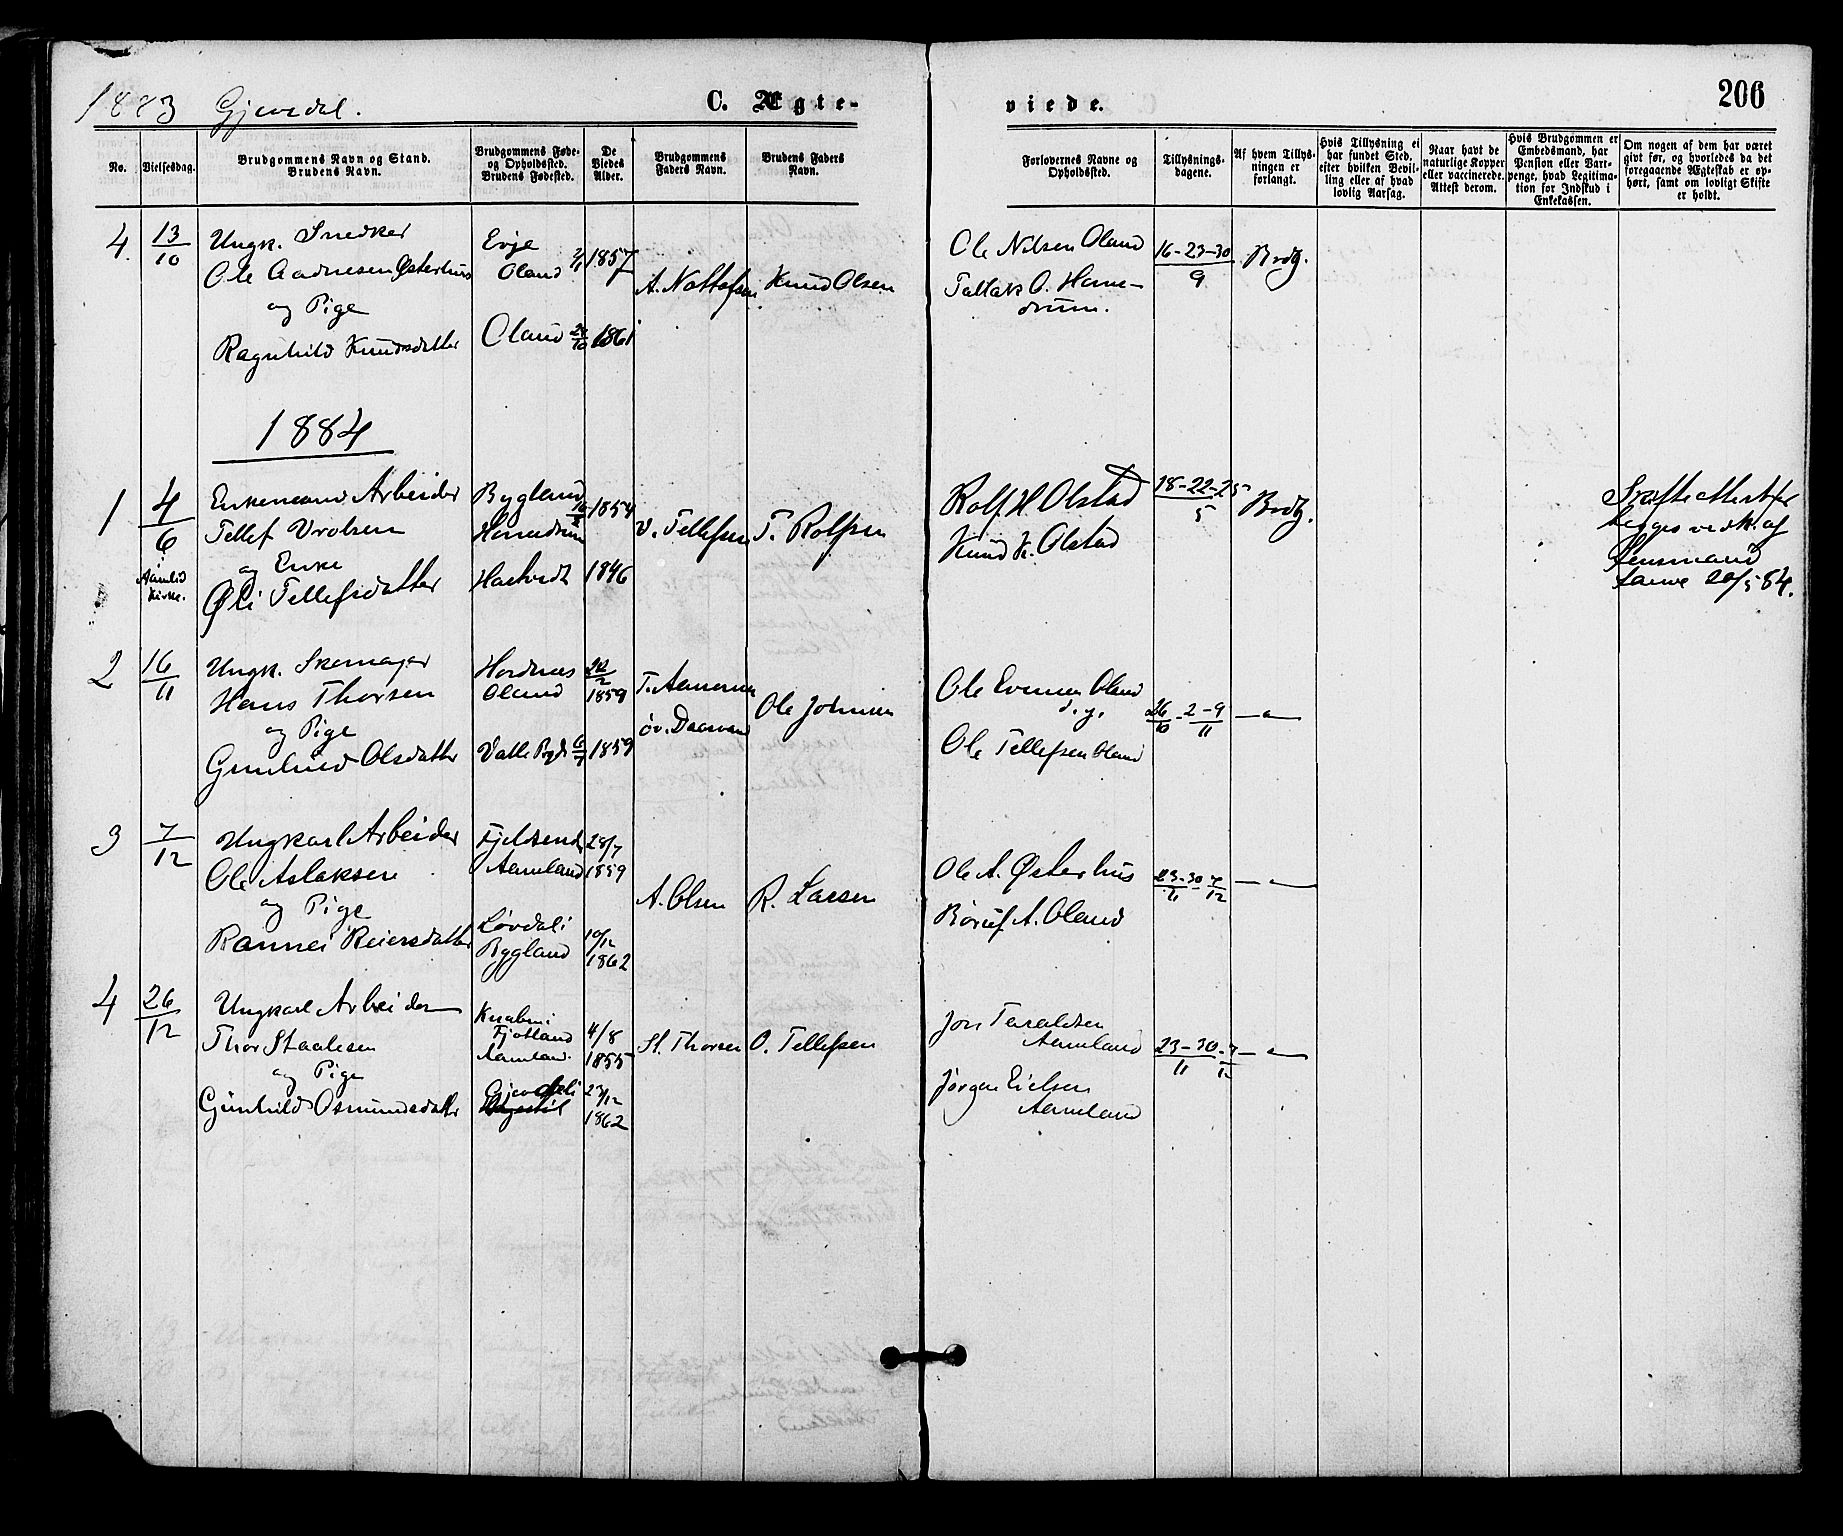 1883 Gjevedal. C. Ægte-
viede. 206
No.
Vielsesdag.
Brudgommens Navn og Stand.
Brudens Navn.
Brudgommens Føde-
og Opholdssted.
Brudens Fødested.
De
Viedes
Alder.
Brudgommens
Faders Navn.
Brudens Faders
Navn.
Forlovernes Navne og
Opholdssted.
Tillysnings-
dagene.
Af hvem Tillys-
ningen er
forlangt.
Hvis Tillysning ei
har fundet Sted,
efter hvilken Bevil-
ling eller af hvad
lovlig Aarsag.
Naar havt de
naturlige Kopper
eller vaccinerede.
Attest derom.
Hvis Brudgommen er
Embedsmand, har
Pension eller Vart-
penge, hvad Legitima-
tion for Indskud i
Enkekassen.
Om nogen af dem har været
givt før, og hvorledes da det
foregaaende Ægteskab er op-
hørt, samt om lovligt Skifte
er holdt.
4. 13/10
Ungk. Snedker
Ole Aadnesen Østerhus
og Pige
Ragnhild Knudsdatter
Evje
Oland 1857
Oland 1861
A. Nottolfsen
Knud Olsen
Ole Nilsen Oland
Tallak O. Hane-
drum.
16-23-30/9
Brdg.
1884
1 4/6
i
Aamlid
Kirke.
Enkemand Arbeider
Tellef Vrolsen
og Enke
Øli Tellefsdatter
Bygland
1854
1846
V. Tellefsen
T. Rolfsen
Rolf H Olstad
Knud K. Olstad
18-22-25/5
Brdg.
Skifteattest for
begges vedk. af
Lensmand
20/5 84.
2 16/11
Ungk. Skomager
Hans Thorsen
og Pige
Gunhild Olsdatter
Oland
1859
Valle 1859
Ole Johnsen
Ole Evensen Oland
d. y.
Ole Tellefsen Oland
26/10 - 2-9/11
— " —
3 7/12
Ungkarl Arbeider
Ole Aslaksen
og Pige
Rannei Reiersdatter
Aamland
28/7
1859
Løvdal i
Bygland
10/12
1862
A. Olsen
R. Larsen
Ole A. Østerhus
A. Oland
23-30/11 7/12
— " —
4 26/12
Ungkarl Arbeider
Thor Staalesen
og Pige
Gunhild Osmundsdatter
Knaben i
Fjotland
Aamland.
4/8
1855
Gjevedal
23/12
1862
St. Thorsen
O. Tellefsen
Jon Taraldsen
Aamland
Jørgen Eielsen
Aamland
23-30/11 7/12
— " —